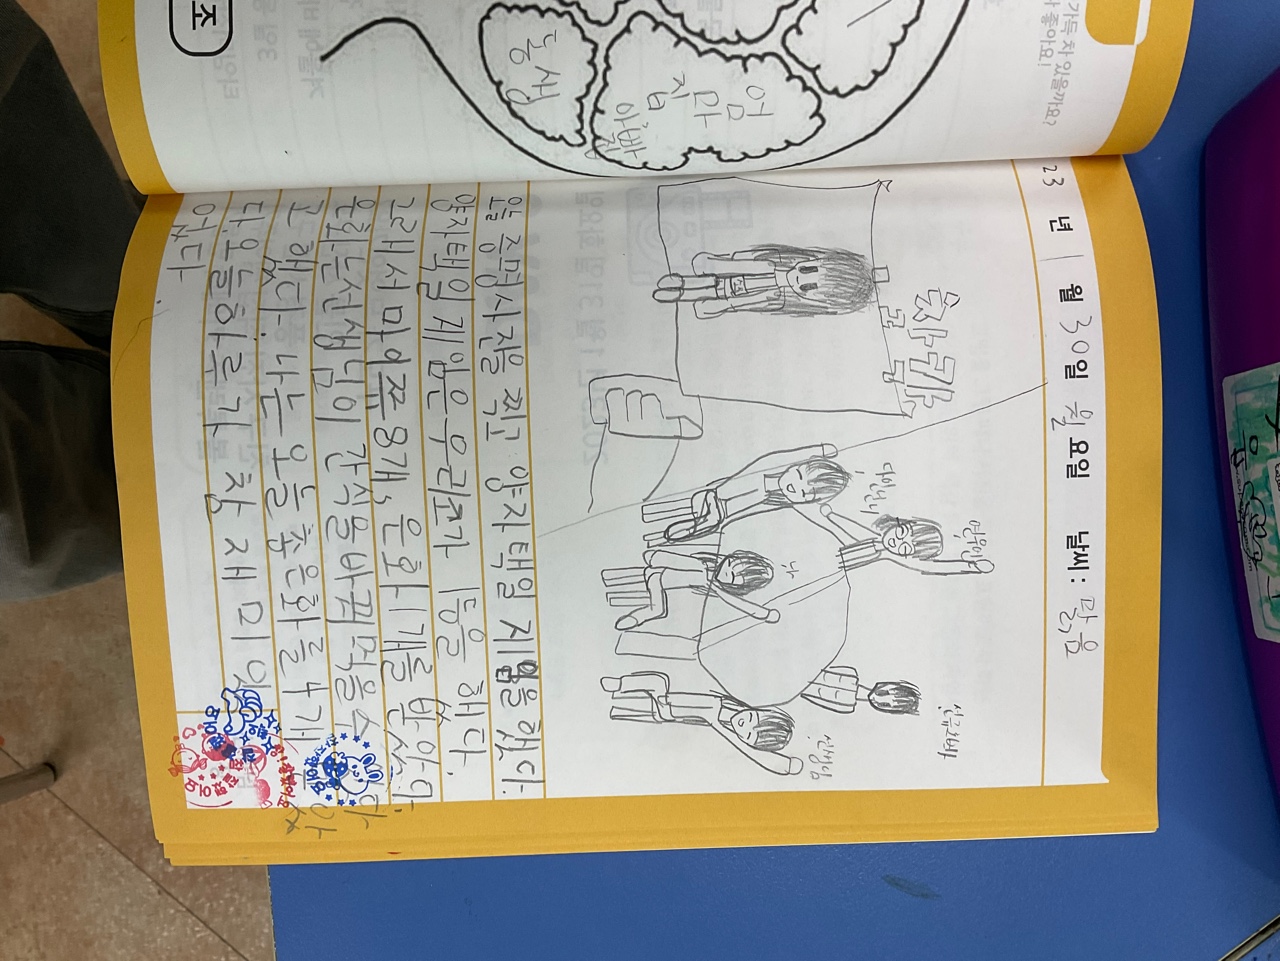 가득 차 있을까요?
좋아요!
엄
마
집
아빠
동생
조
23 년 1 월 30일 월요일 날씨: 맑음
찰칵
연우언니
선규오빠
다인언니
선생님
나
오늘 증명사진을 찍고 양자택일 게임을 했다.
양자택일 게임은 우리조가 1등을 했다.
그래서 마이쮸 8개, 은화 1개를 받았다.
은화는 선생님이 간식을 바꿔 먹을 수 다
고 했다. 나는 오늘 총 은화를 4개
다. 오늘하루가 참 재미있
었다.